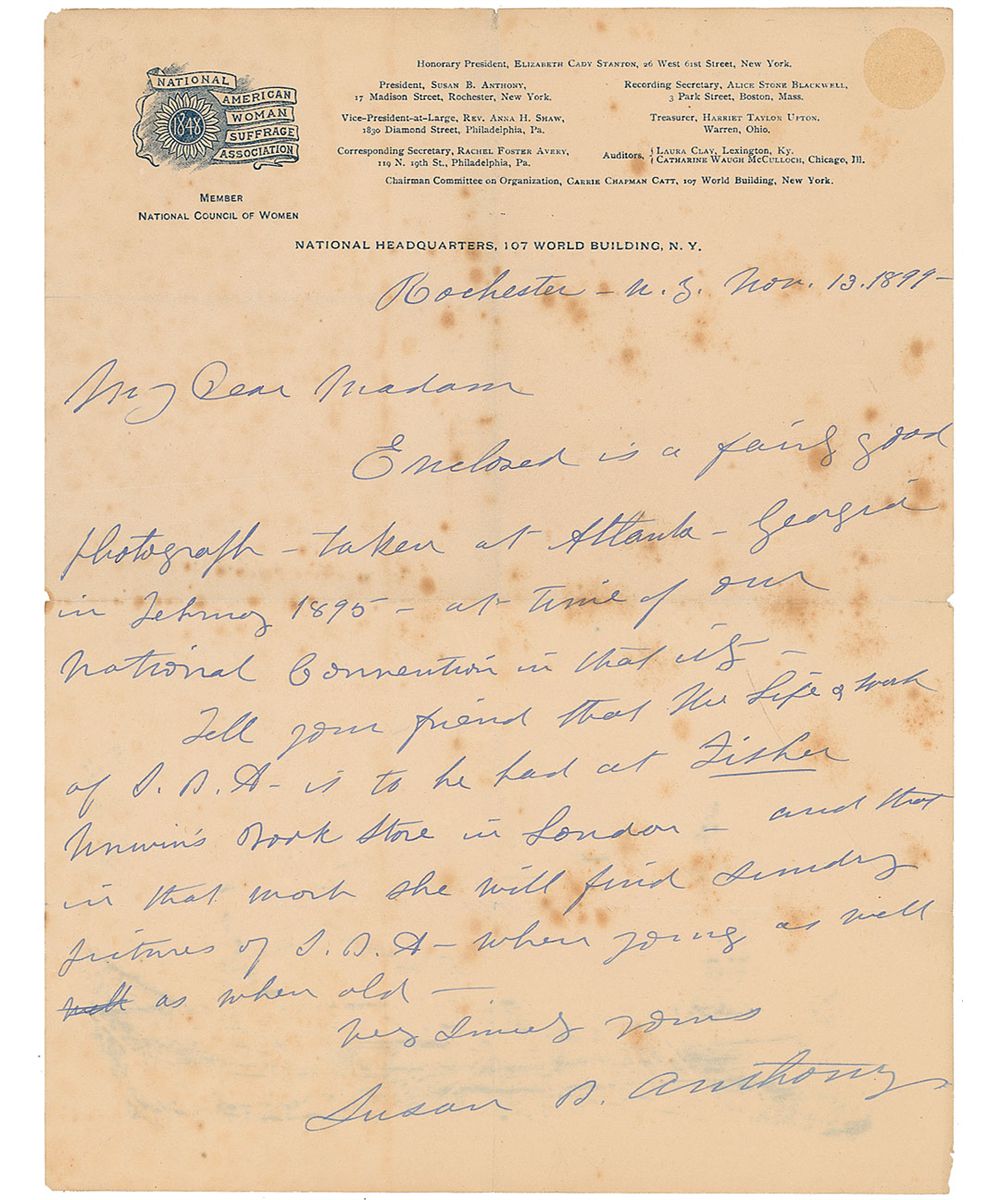 NATIONAL
AMERICAN
WOMAN
SUFFRAGE
ASSOCIATION
1848
MEMBER
NATIONAL COUNCIL OF WOMEN
Honorary President, ELIZABETH CADY STANTON, 26 West 61st Street, New York.
President, SUSAN B. ANTHONY,
17 Madison Street, Rochester, New York.
Recording Secretary, ALICE STONE BLACKWELL,
3 Park Street, Boston, Mass.
Vice-President-at-Large, REV. ANNA H. SHAW,
1830 Diamond Street, Philadelphia, Pa.
Treasurer, HARRIET TAYLOR UPTON,
Warren, Ohio.
Corresponding Secretary, RACHEL FOSTER AVERY,
119 N. 19th St., Philadelphia, Pa.
Auditors, { LAURA CLAY, Lexington, Ky.
{ CATHARINE WAUGH MCCULLOCH, Chicago, Ill.
Chairman Committee on Organization, CARRIE CHAPMAN CATT, 107 World Building, New York.
NATIONAL HEADQUARTERS, 107 WORLD BUILDING, N. Y.
Rochester - N. Y. Nov. 13. 1899 -
My Dear Madam
Enclosed is a fairly good
photograph - taken at Atlanta - Georgia
in February 1895 - at time of our
National Convention in that city -
Tell your friend that the Life & Work
of S. B. A - is to be had at Fisher
Unwin's Book Store in London - and that
in that work she will find sundry
pictures of S. B. A - when young as well
well as when old -
Very Sincerely yours
Susan B. Anthony